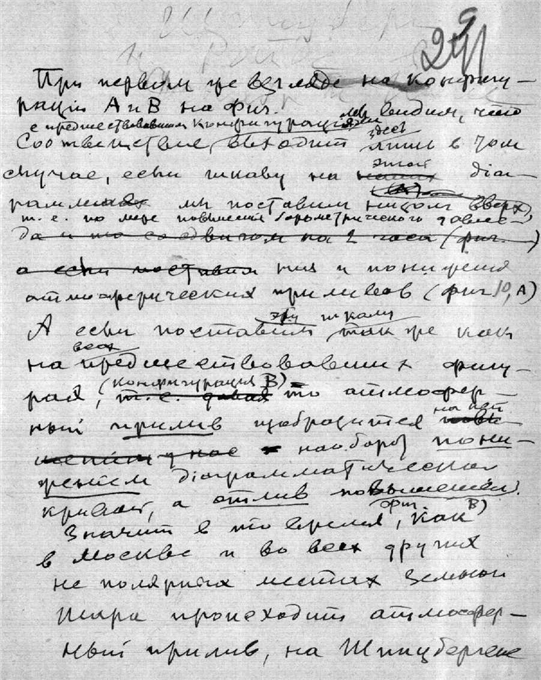 291
При первом же взгляде на конфигу-
рации А и В на фиг. мы видим, что
с предшествовавшими конфигурациями здесь
соответствие выходит лишь в том
случае, если шкалу на этой диа-
грамме мы поставим низом вверх,
т. е. по мере повышения барометрического давле-
да и то со сдвигом на 2 часа (фиг. )
а если поставим ния и понижения
атмосферических приливов (фиг 10, А)
А если поставим эту шкалу так же как
на всех предшествовавших фигу-
рах, (конфигурация В) т. е. то атмосфер
ный прилив изобразится на ней
наоборот пони-
жением диаграмматической
кривой, а отлив повышением.
(фиг. В)
Значит в то время, как
в Москве и во всех других
не полярных местах земного
шара происходит атмосфер-
ный прилив, на Шпицбергене